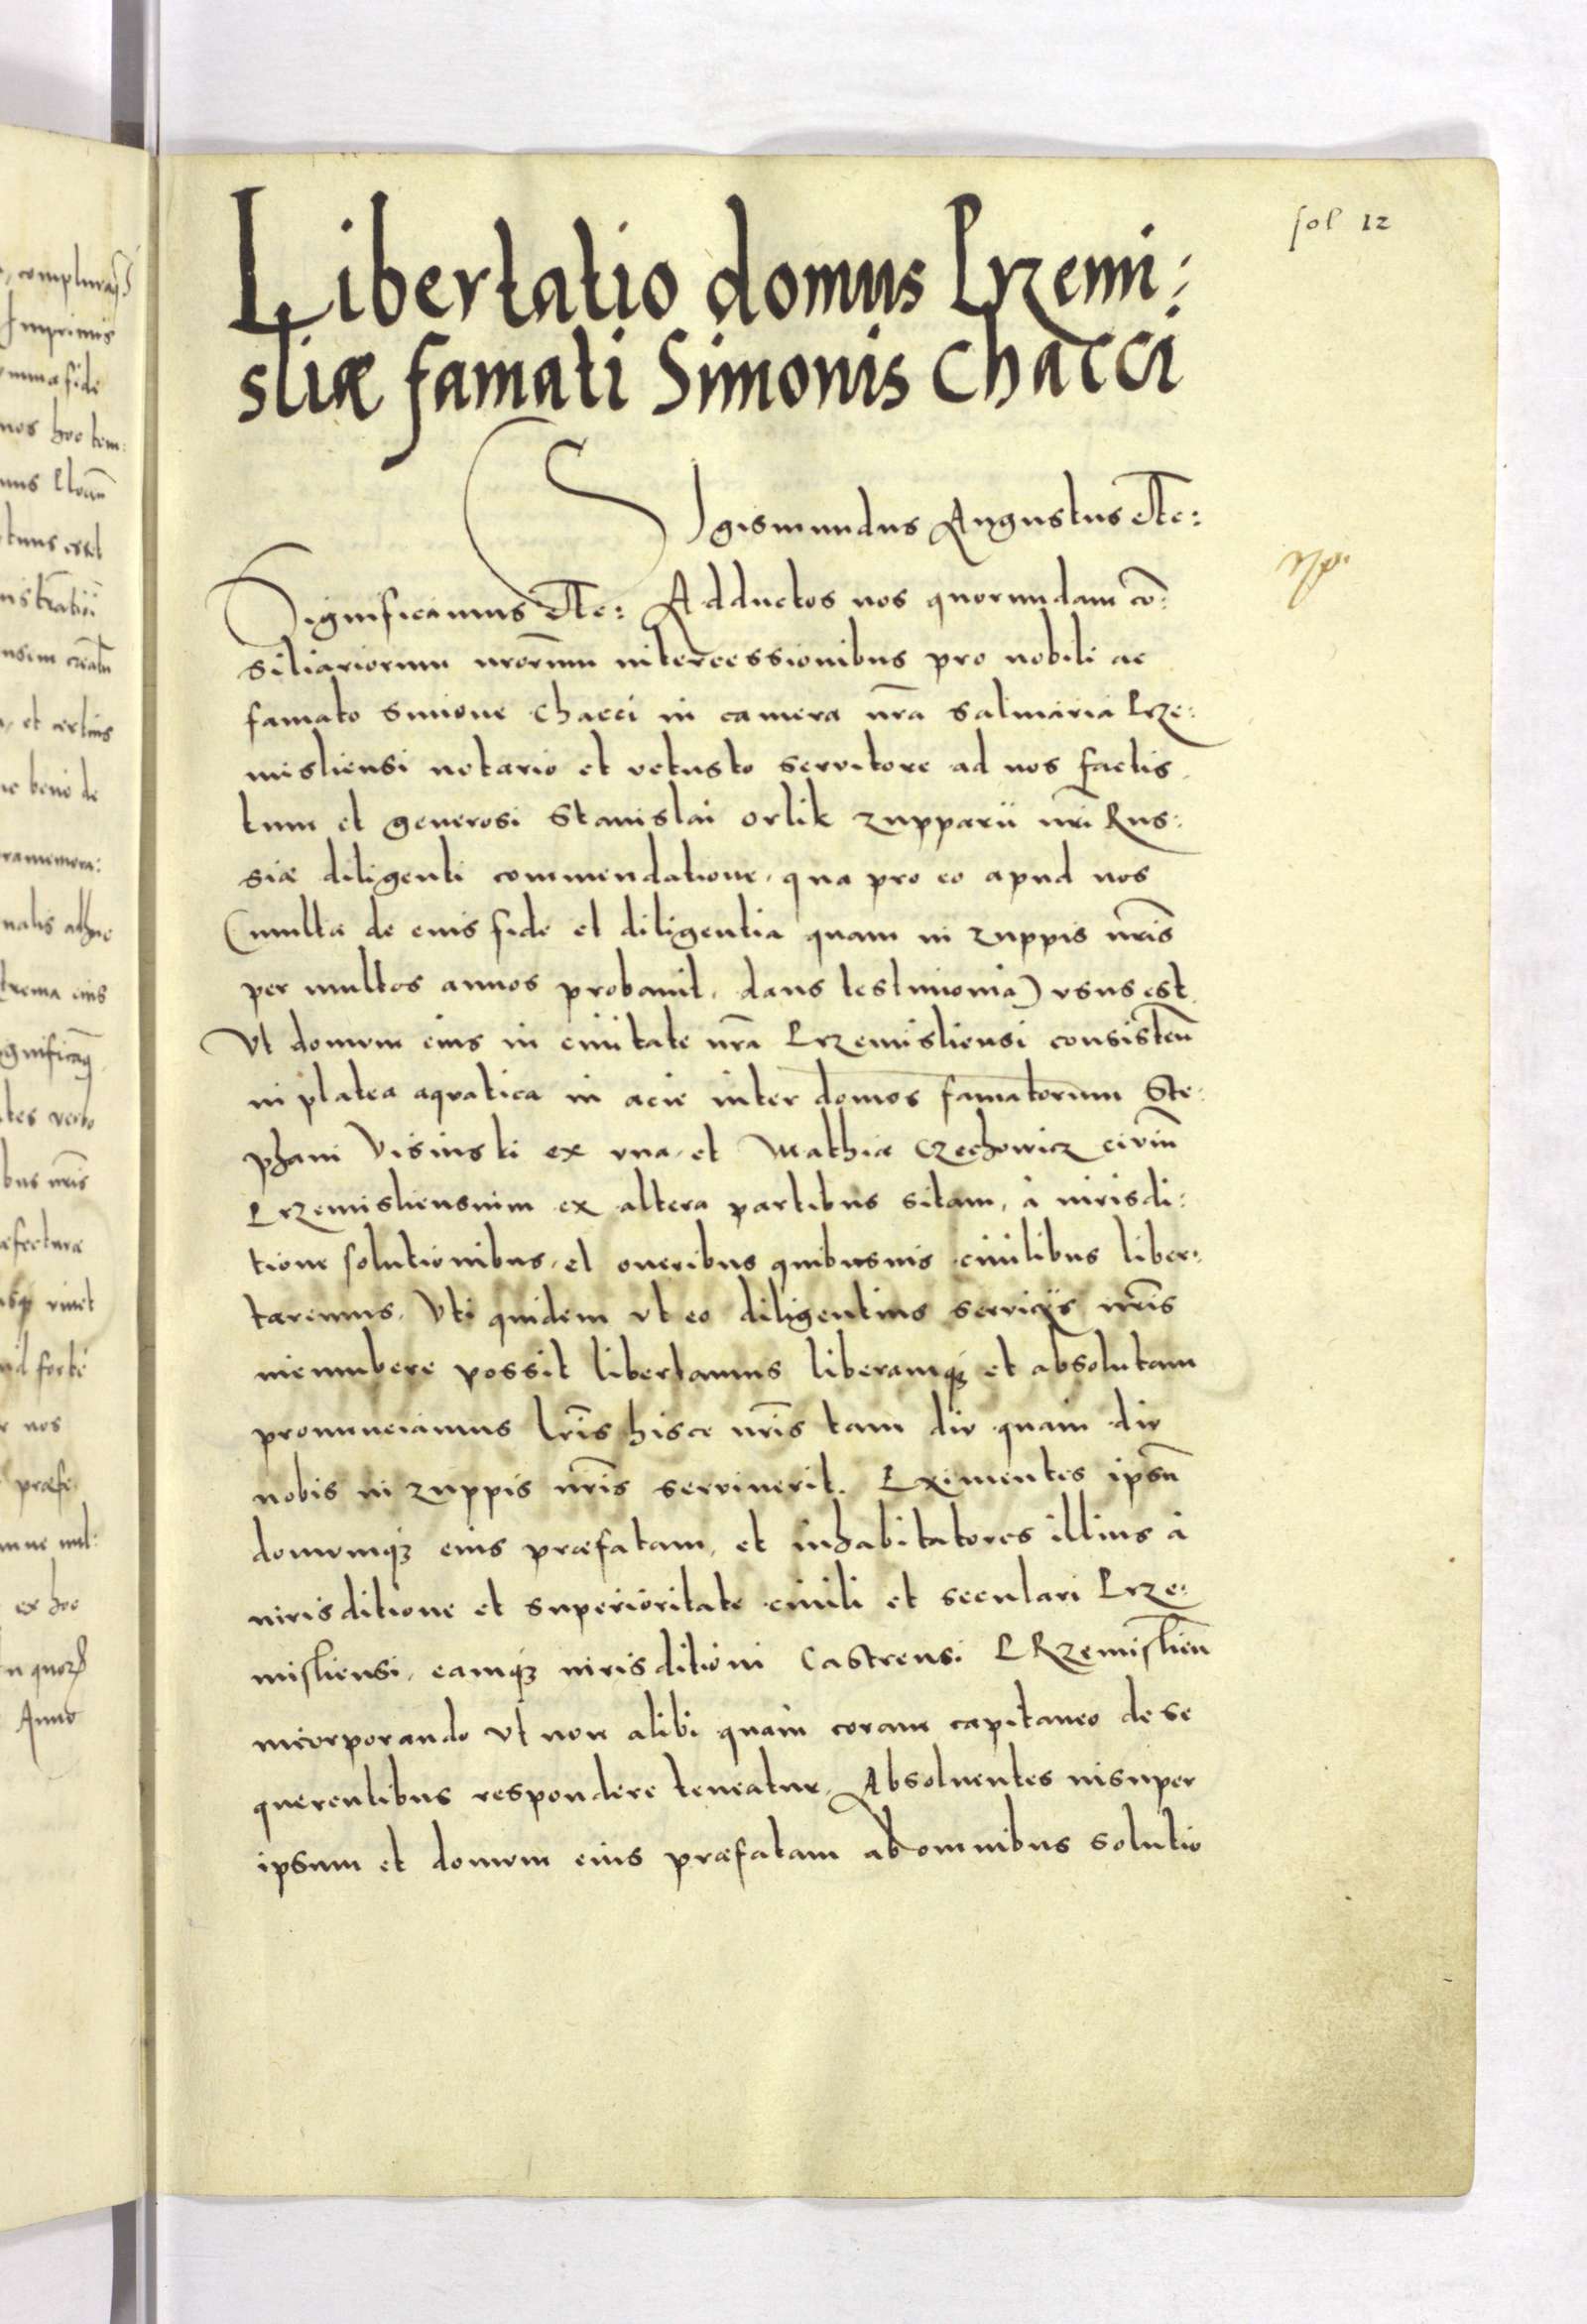 fol 12
Libertatio domus Przemi:
sliæ famati Simonis Chacci
Sigismundus Augustus etc:
Significamus etc: Adductos nos quorundam cō:
siliariorum nrorum intercessionibus pro nobili ac
famato Simone Chacci in camera nrā salinaria Prze:
misliensi notario et vetusto servitore ad nos factis
tum et generosi Stanislai Orlik zupparii nrī Rus:
siæ diligenti commendatione, qua pro eo apud nos
(multa de eius fide et diligentia quam in zuppis nrīs
per multos annos probavit, dans testimonia) usus est
Ut domum eius in civitate nrā Przemisliensi consisten̄
in platea aquatica in acie inter domos famatorum Ste:
phani Visinski ex una, et Mathiæ Czechowicz civiū
Przemisliensium ex altera partibus sitam, à iurisdi:
tione solutionibus, et oneribus quibusuis ciuilibus liber:
taremus. Uti quidem ut eo diligentius serviciis nrīs
incumbere possit libertamus liberamqz et absolutam
pronunciamus lrīs hisce nrīs tam diu quam diu
nobis in zuppis nrīs servinerit. Eximentes ipsū
domumqz eius præfatam, et inhabitatores illius à
iurisditione et superioritate ciuili et seculari Prze:
misliensi, eamqz iurisditioni Castrensi PRzemislien̄
incorporando ut non alibi quàm coram capitaneo de se
querentibus respondere teneatur. Absoluentes insuper
ipsum et domum eius præfatam ab omnibus solutio